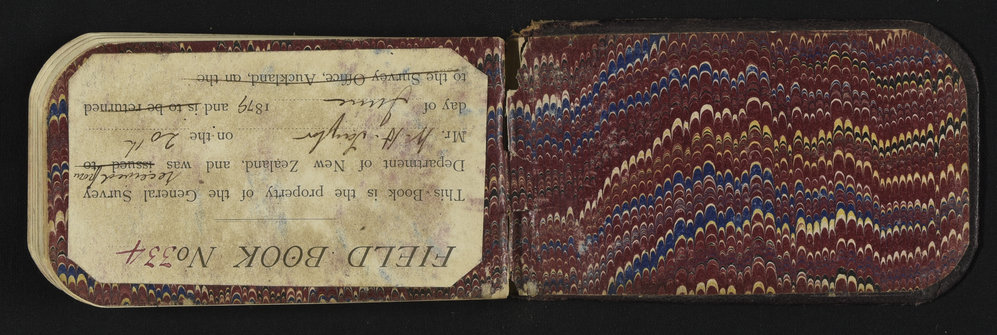 FIELD BOOK No 334
This Book is the property of the General Survey
received from
Department of New Zealand, and was issued to
Mr. W. H. Taylor on the 20th
day of June 1879 and is to be returned
to the Survey Office, Auckland, on the